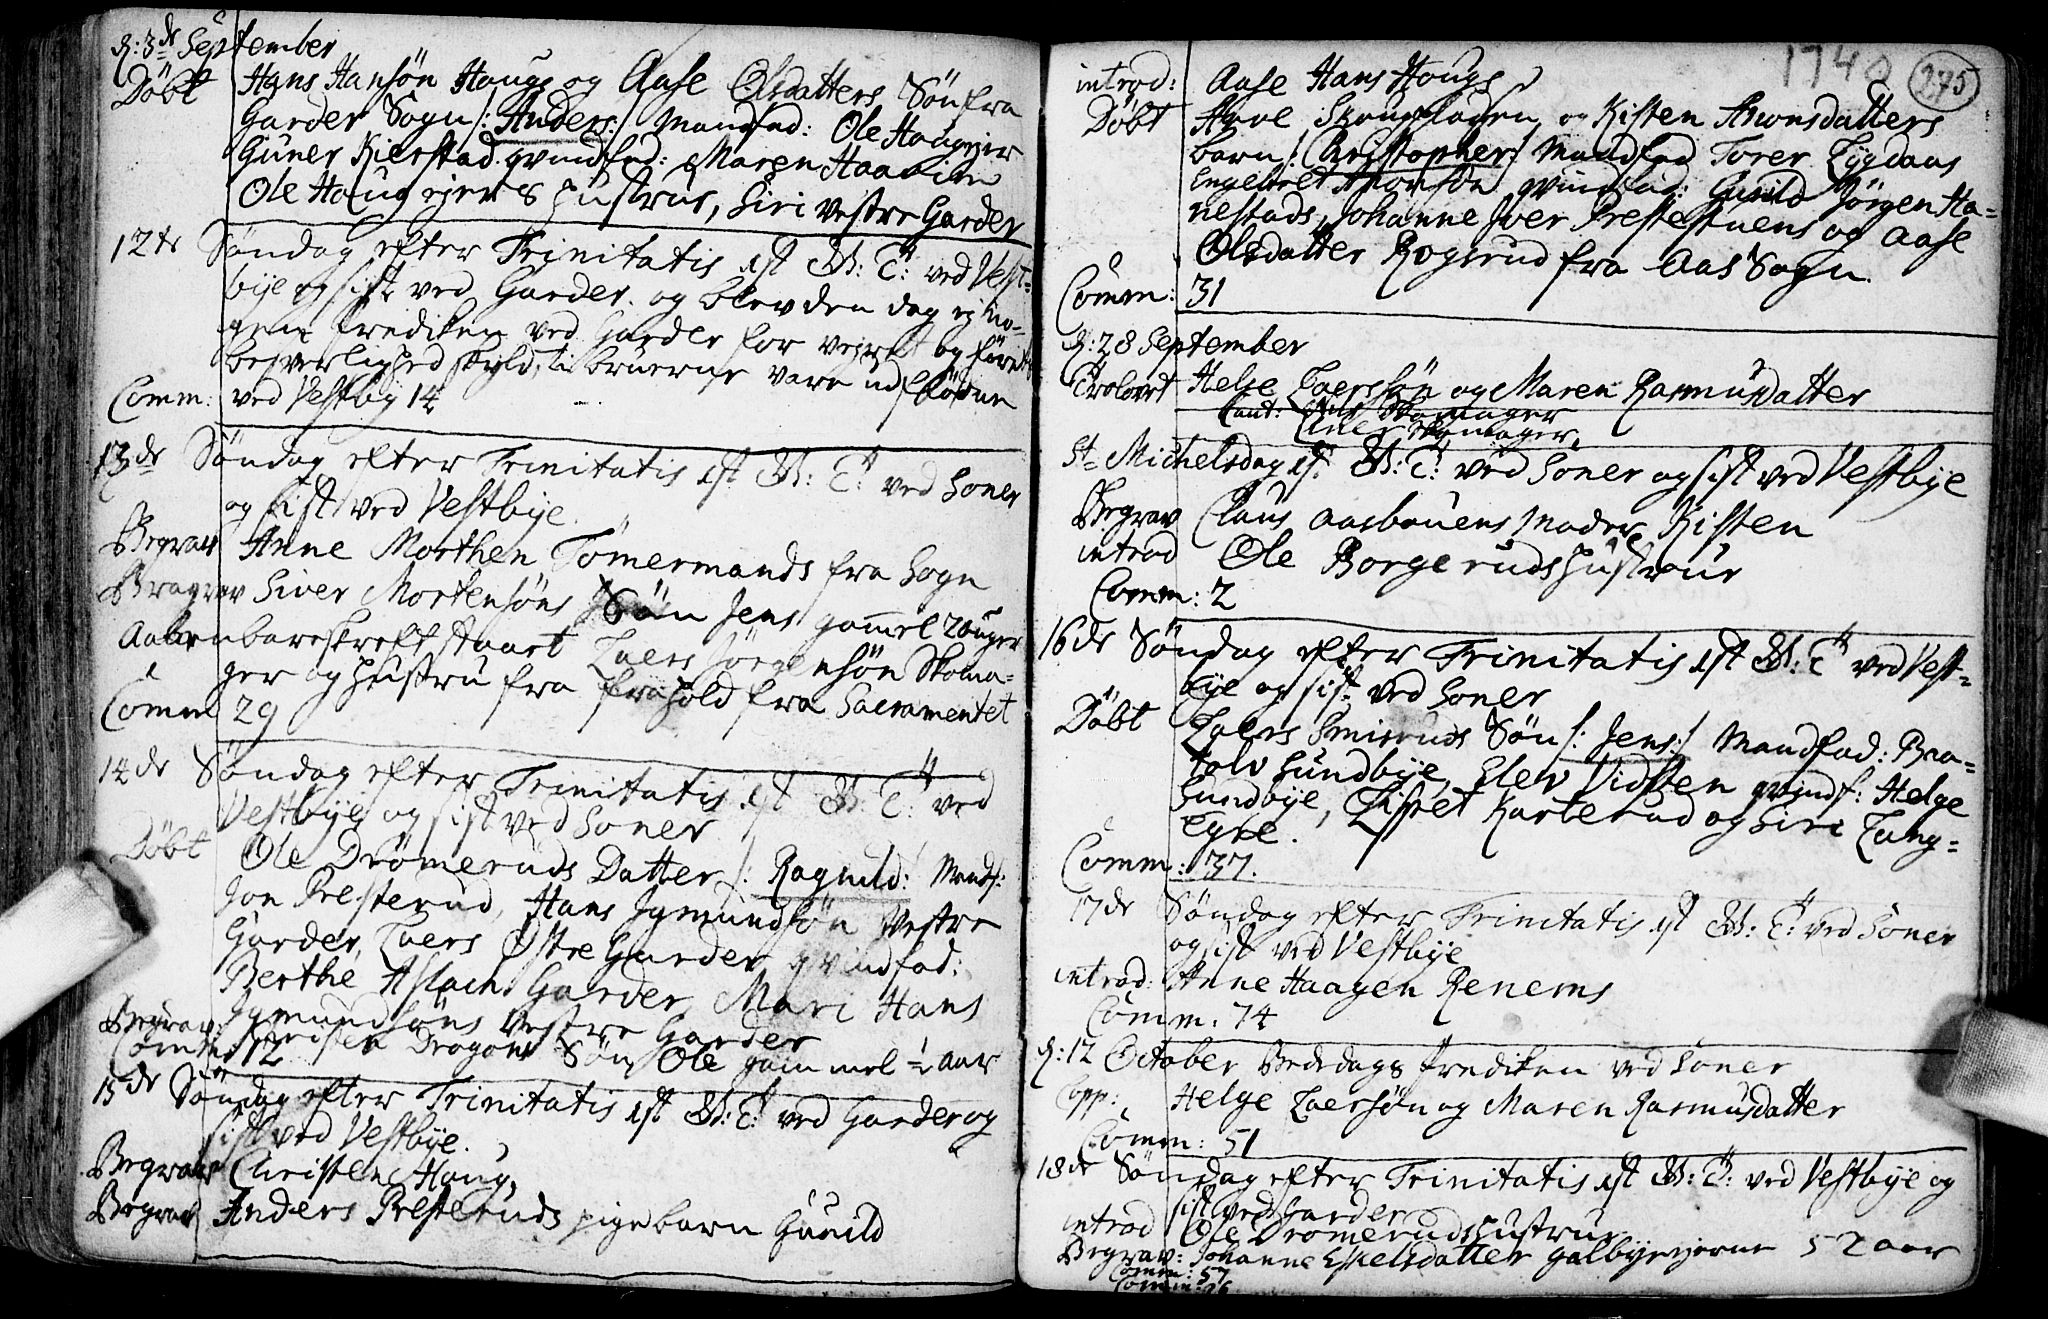 d: 3de September
Döbt Hans Hansön Haugs og Aase Olsdatters Sön fra
Garder Sogn /: Anders :/ Mandfad: Ole Haugeier
Guner Kierstad. qvindfad: Maren Haaien
Ole Haugeiers Hustrue, Siri Vestre Garder
12te Söndag efter Trinitatis 1st B: T: ved Vest-
bye og sist ved Garder. og blev den dag ej no-
gen Prediken ved Garder for vejret og förets
besverlighed skyld, ti bruerne vare udflödne
Comm: ved Vestby 14
13de Söndag efter Trinitatis 1st B: T: ved Soner
og sist ved Vestbye.
Begrav Anne Morthen Tömermands fra Sogn
Begrav Siver Mortensöns Sön Jens gamel 20 uger
Aabenbareskreft staart Laers Jörgensön Skoma-
ger og Hustru fra frahold fra Sacramentet
Comm 29
14de Söndag efter Trinitatis 1st B: T: ved
Vestbye og sist ved Soner
Döbt Ole Drömeruds Datter /: Ragnild: Mandf:
Jon Presterud, Hans Jgmundsön Vestre
Garder, Laers Östre Garder qvindfad:
Berthe Aslach Garder, Mari Hans
Jgmundsöns Vestre Garder
Begrav: Christen Dragons Sön Ole gammel 1/2 aar
Comm 12
15de Söndag efter Trinitatis 1st B: T: ved Garder og
sist ved Vestbye.
Begrav Christen Haug,
Begrav Anders Presteruds pigebarn Gunild
1740 275
introd: Aase Hans Haugs
Döbt Arve Skougsladen og Kisten Arvonsdatters
barn /: Christopher :/ Mandfad Torer Lygdaas
Engebret qvindfad: Gunild Jörgen Ha-
nestads, Johanne Jver Prestestuens og Aase
Olsdatter Rogerud fra Aas Sogn.
Comm: 31
d: 28 September
Trolovet Helge Laersön og Maren Rasmusdatter
Caut: Skomager
Skomager.
St Michelsdag 1st B: T: ved Soner og sist ved Vestbye
Begrav Claus Aasbauens Moder Kisten
introd Ole Borgeruds Hustrue
Comm: 2
16de Söndag efter Trinitatis 1st B: T: ved Vest-
bye og sist ved Soner
Döbt Laers Smieruds Sön /: Jens :/ Mandfad: Bra-
tolv Sundbye, Elev Vidsten qvindf: Helge
Sundbye, Lisset Karterud og Siri Lang-
Egre.
Comm: 37.
17de Söndag efter Trinitatis 1st B: T: ved Soner
og sist ved Vestbye
introd: Anne Haagen Renems
Comm: 74
d: 12 October Bededags Prediken ved Soner
Cop: Helge Laersön og Maren Rasmusdatter
Comm: 51
18de Söndag efter Trinitatis 1st B: T: ved Vestbye og
sist ved Garder
introd Ole Drömeruds Hustrue
Begrav: Johanne Eskelsdatter galbyeejerne 52 aar
Comm: 57
Comm: 26